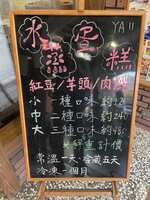 水蒸蛋糕
YA!!
紅豆/芋頭/肉鬆
小 一種口味 約120
中 二種口味 約240
大 三種口味 約
計價
常溫一天.冷藏五天
冷凍一個月